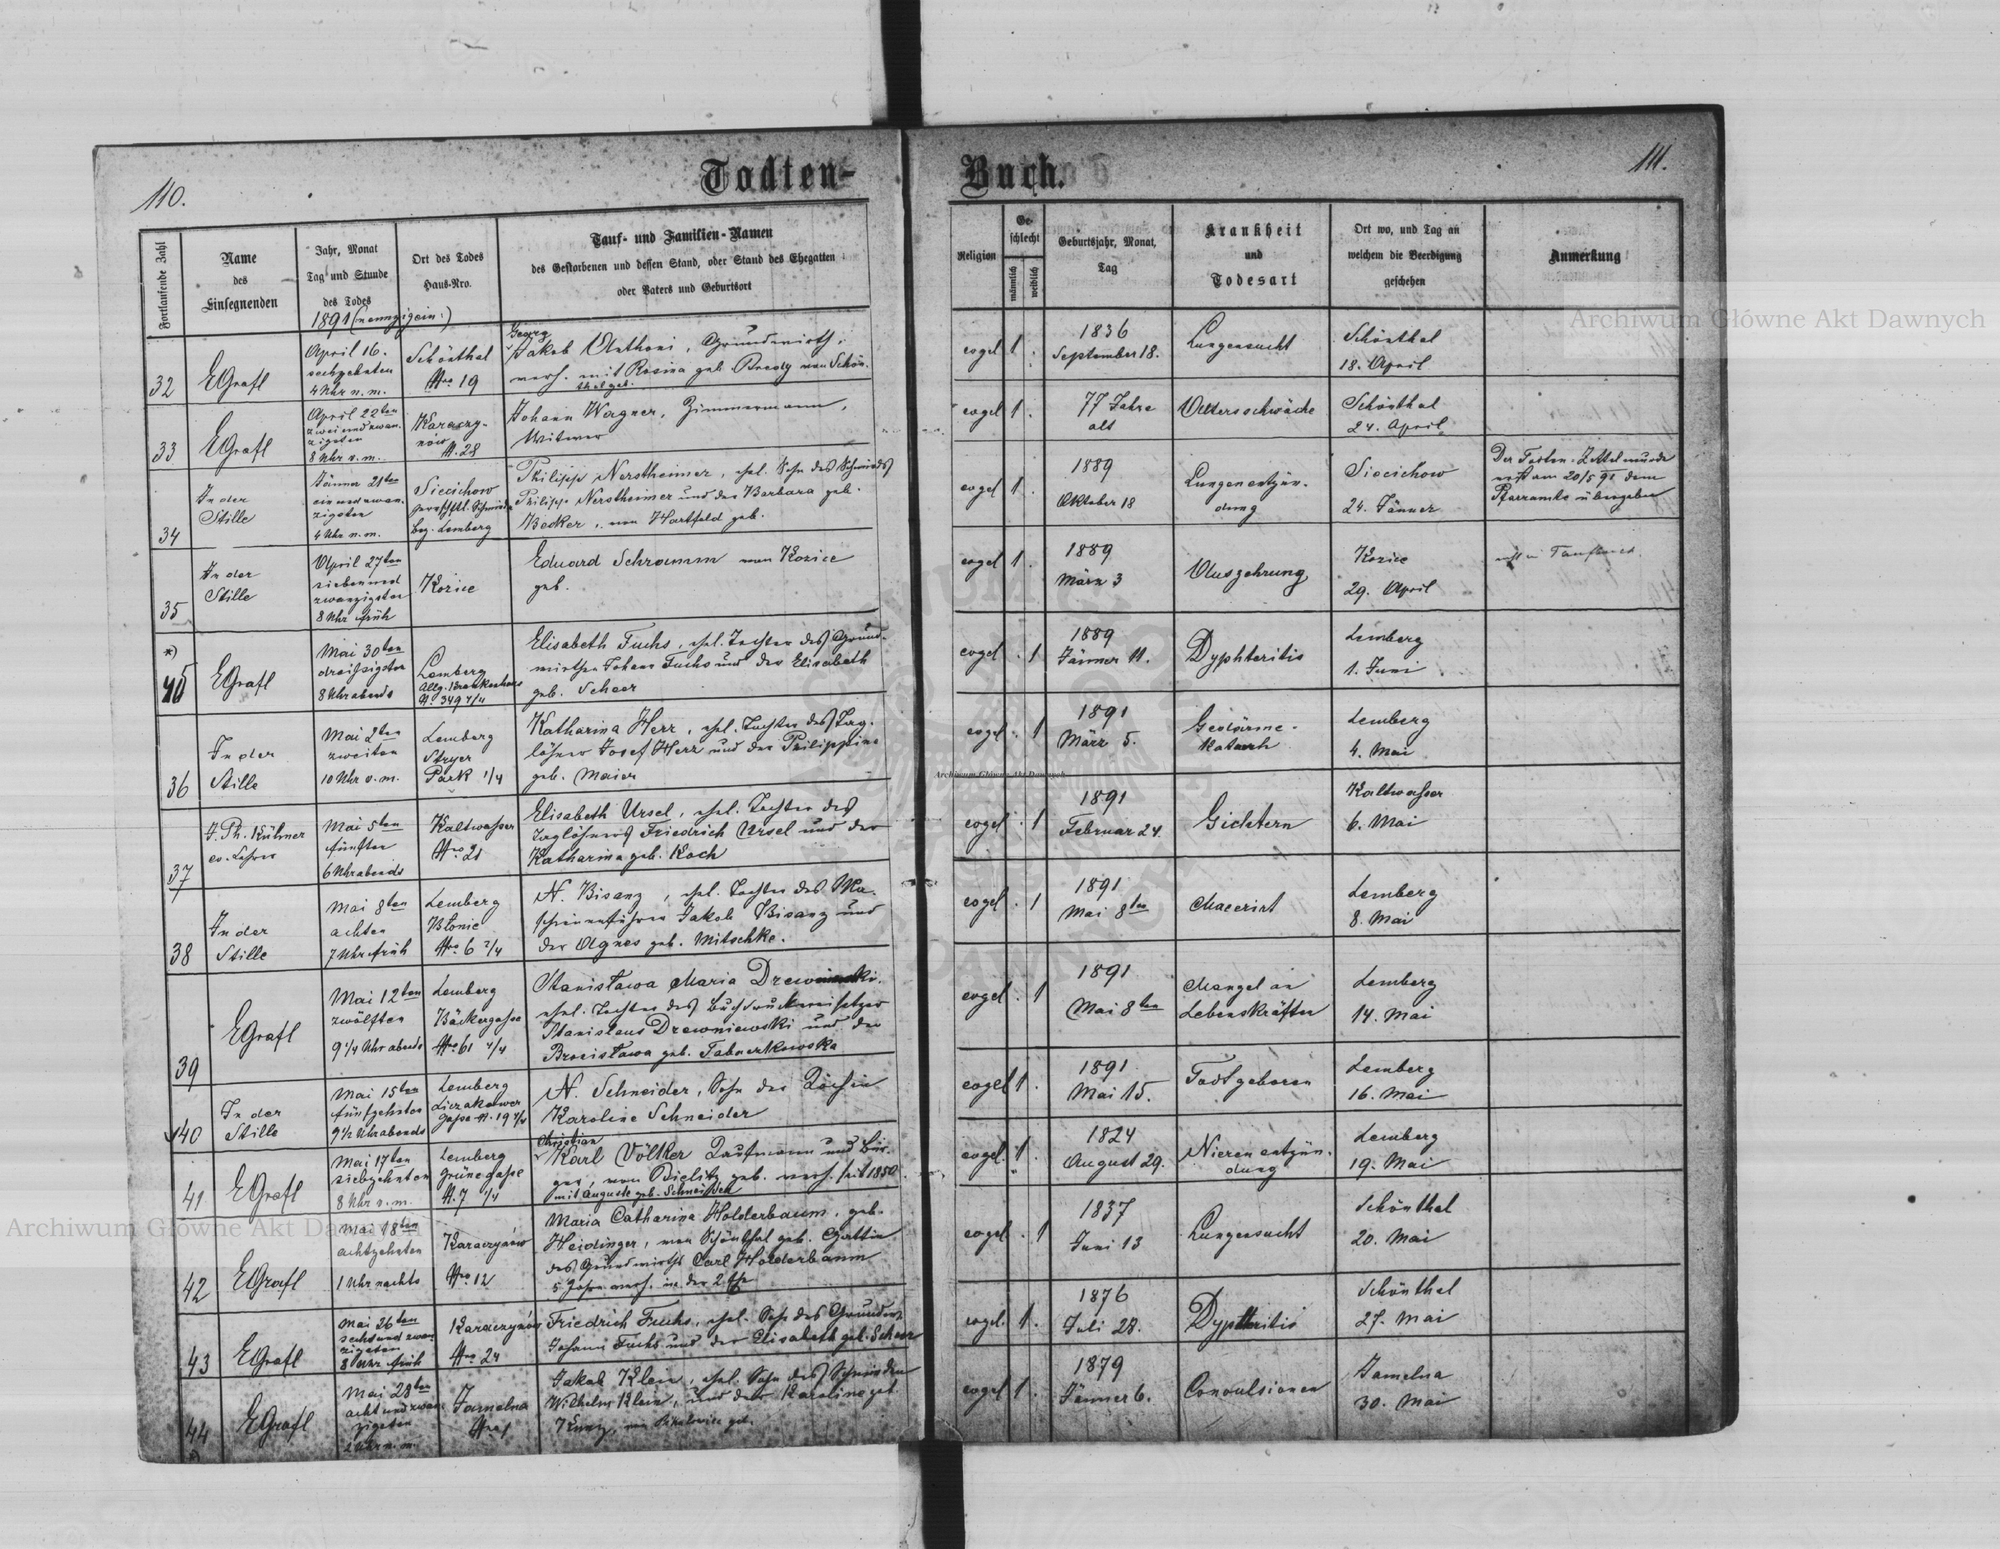 110.
Todten-
Fortlaufende Zahl
Name
des
Einsegnenden
Jahr, Monat
Tag und Stunde
des Todes
1891 (neunzigein:)
Ort des Todes
Haus-Nro.
Tauf- und Familien-Namen
des Gestorbenen und dessen Stand, oder Stand des Ehegatten
oder Vaters und Geburtsort
32
EGrafl
April 16.
sechzehnten
4 Uhr n. m.
Schönthal
Nro 19
Georg
Jakob Anthoni, Grundwirth,
verh. mit Rosina geb. Bredy von Schön-
thal geb.
33
EGrafl
April 22ten
zweiundzwan-
zigsten
8 Uhr v. m.
Karaczy-
nów
N. 28
Johann Wagner, Zimmermann,
Witwer
34
In der
Stille
Jänner 21ten
einundzwan-
zigsten
4 Uhr n. m.
Siecichow
Bez. Lemberg
Philipp Nerstheimer, ehel. Sohn des Schmieds
Philipp Nerstheimer und der Barbara geb.
Becker, von Hartfeld geb.
35
In der
Stille
April 27ten
siebenund
zwanzigsten
8 Uhr früh
Kozice
Eduard Schramm von Kozice
geb.
*)
45
EGrafl
Mai 30ten
dreißigsten
8 Uhr abends
Lemberg
Allg. Krankenhaus
N. 349 4/4
Elisabeth Fuchs, ehel. Tochter des Grund-
wirthen Johann Fuchs und der Elisabeth
geb. Scheer
36
In der
Stille
Mai 2ten
zweiten
10 Uhr v. m.
Lemberg
Stryer
Park 1/4
Katharina Herr, ehel. Tochter des Tag-
löhners Josef Herr und der Philippine
geb. Maier
37
J. Ph. Kühner
ev. Lehrer
Mai 5ten
fünften
6 Uhr abends
Kaltwasser
Nro 21
Elisabeth Ursel, ehel. Tochter des
Taglöhners Friedrich Ursel und der
Katharina geb. Koch
38
In der
Stille
Mai 8ten
achten
7 Uhr früh
Lemberg
Błonie
Nro 6 2/4
N. Bisanz, ehel. Tochter des Ma-
schinenführers Jakob Bisanz und
der Agnes geb. Mitschke.
39
EGrafl
Mai 12ten
zwölften
9 1/4 Uhr abends
Lemberg
Bäckergasse
Nro 61 4/4
Stanisława Maria Drewniewski.
ehel. Tochter des Buchdruckereisetzer
Stanislaus Drewniewski und der
Bronisława geb.
40
In der
Stille
Mai 15ten
fünfzehnten
9 1/2 Uhr abends
Lemberg
Liczakower
Gasse N. 19 4/4
N. Schneider, Sohn der Köchin
Karoline Schneider
41
EGrafl
Mai 17ten
siebzehnten
8 Uhr v. m.
Lemberg
Grünegasse
N. 7 1/4
Christian
Karl Völker Kaufmann und Bür-
ger, von Bielitz geb. verh. seit 1850
mit Auguste geb.
42
EGrafl
Mai 18ten
achtzehnten
1 Uhr nachts
Karaczynów
Nro 12
Maria Catharina Holderbaum, geb.
Heidinger, von Schönthal geb. Gattin
des Grundwirths Carl Holderbaum
5 Jahre verh. in der 2 Ehe
43
EGrafl
Mai 26ten
sechsundzwan
zigsten
8 Uhr früh
Karaczynów
Nro 24
Friedrich Fuchs, ehel. Sohn des Grundw.
Johann Fuchs und der Elisabeth geb. Scheer
44
EGrafl
Mai 28ten
achtundzwan
zigsten
2 Uhr n. m.
Jamelna
Nro 1
Jakob Klein, ehel. Sohn des Schmieden
Wilhelm Klein, und der Karoline geb.
Kunz,
Buch.
111.
Religion
Ge-
schlecht
männlich
weiblich
Geburtsjahr, Monat,
Tag
Krankheit
und
Todesart
Ort wo, und Tag an
welchem die Beerdigung
geschehen
Anmerkung
evgel 1
1836
September 18.
Lungensucht
Schönthal
18. April
evgel 1.
77 Jahre
alt
Altersschwäche
Schönthal
24. April
evgel 1
1889
Oktober 18
Lungenentzün-
dung
Siecichow
24. Jänner
Der Todten-Zettel wurde
erst am 20/5 91 dem
Pfarramte übergeben
evgel 1.
1889
März 3
Auszehrung
Kozice
29. April
evgel . 1
1889
Jänner 11.
Dyphteritis
Lemberg
1. Juni
evgel . 1
1891
März 5.
Gedärme-
katarrh
Lemberg
4. Mai
evgel . 1
1891
Februar 24.
Gichtern
Kaltwasser
6. Mai
evgel . 1
1891
Mai 8ten
Macerirt
Lemberg
8. Mai
evgel . 1
1891
Mai 8ten
Mangel an
Lebenskräften
Lemberg
14. Mai
evgel 1.
1891
Mai 15.
Todtgeboren
Lemberg
16. Mai
evgel. 1.
1824
August 29.
Nierenentzün-
dung
Lemberg
19. Mai
evgel . 1
1837
Juni 13
Lungensucht
Schönthal
20. Mai
evgel. 1.
1876
Juli 28.
Dyphteritis
Schönthal
27. Mai
evgel 1.
1879
Jänner 6.
Convulsionen
Jamelna
30. Mai
Archiwum Główne Akt Dawnych
Archiwum Główne Akt Dawnych
Archiwum Główne Akt Dawnych